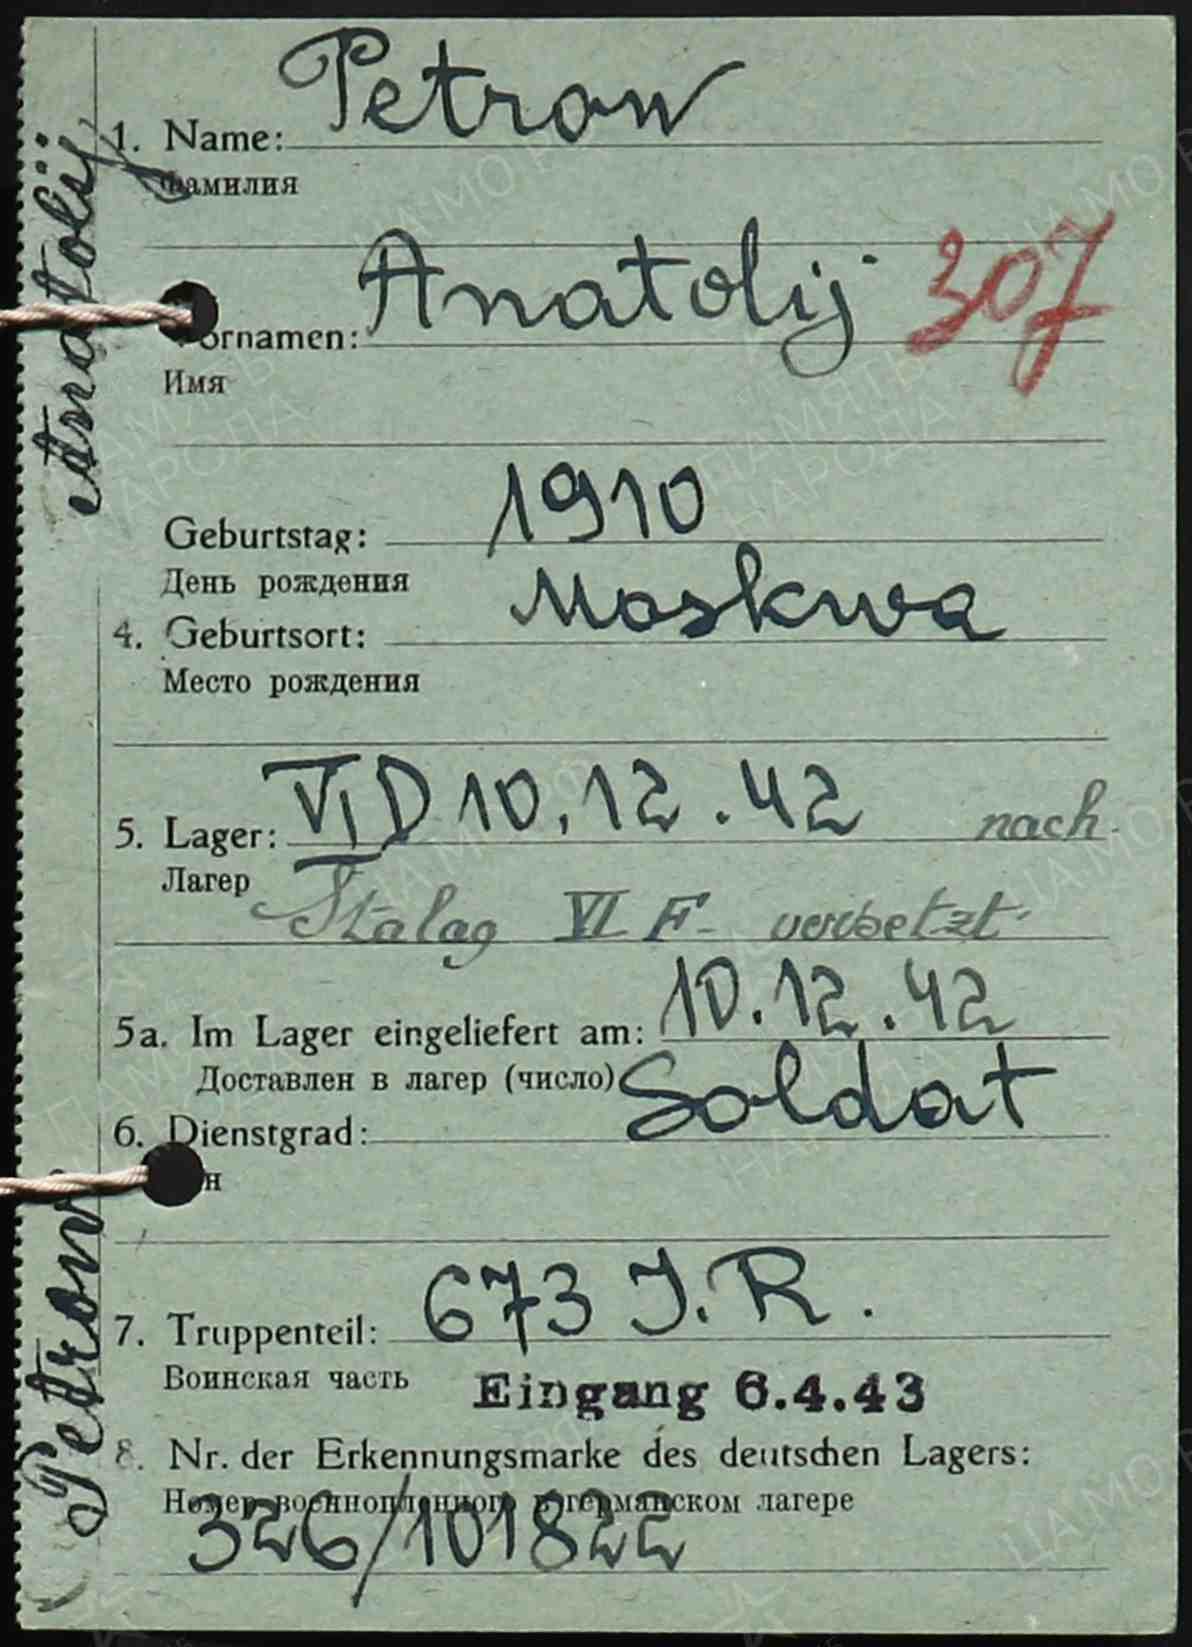 Petrow
1. Name:
Фамилия
Anatolij 307
ornamen:
Имя
1910
Geburtstag:
День рождения
Moskwa
4. Geburtsort:
Место рождения
VI D 10.12.42 nach
5. Lager:
Лагер
Stalag VI F versetzt
10.12.42
5a. Im Lager eingeliefert am:
Доставлен в лагер (число)
Soldat
6. Dienstgrad:
н
673 J.R.
7. Truppenteil:
Воинская часть
Eingang 6.4.43
8. Nr. der Erkennungsmarke des deutschen Lagers:
Номер военнопленного в германском лагере
326/101822
Petrow Anatolij
ЦАМО РФ
ПАМЯТЬ
НАРОДА